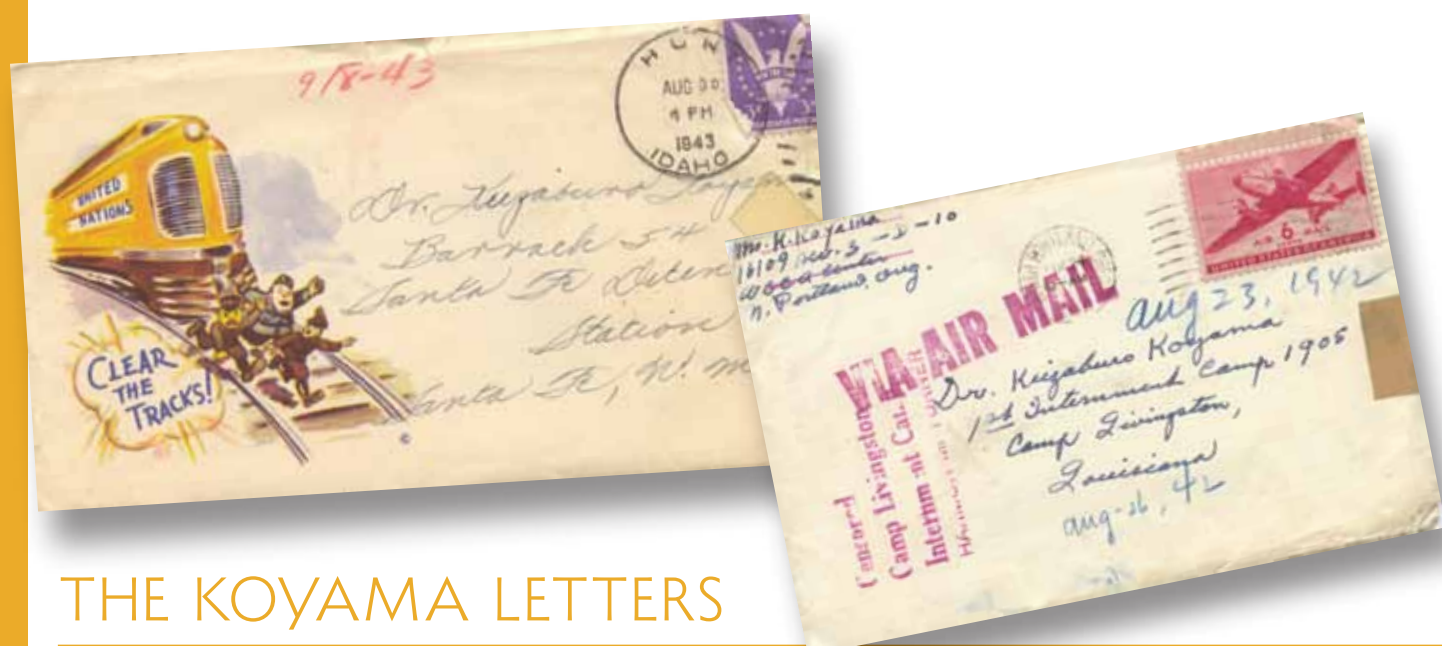 9/8-43
HUN
AUG 30
4 PM
1943
IDAHO
UNITED
NATIONS
CLEAR
THE
TRACKS!
©
Dr. Keizaburo Koyam
Barrack 54
Santa Fe Deten
Station
Santa Fe, N. M
Mr. K. Koyama
16109 No. 3-D-10
WCCA Center
N. Portland, Oreg.
AIR 6 MAIL
UNITED STATES OF AMERICA
VIA AIR MAIL
Aug 23, 1942
Dr. Keizaburo Koyama
1st Internment Camp 1905
Camp Livingston,
Louisiana
Aug-26, 42
Camp Livingston
THE KOYAMA LETTERS